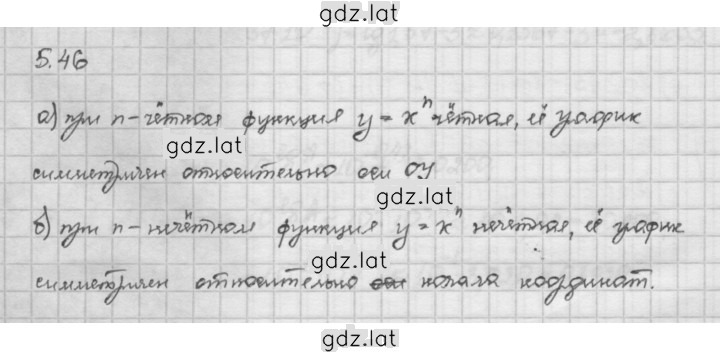 gdz.lat
5.46
а) при n-чётном функция y = xⁿ чётная, её график
gdz.lat
симметричен относительно оси OY
gdz.lat
б) при n-нечётном функция y = xⁿ нечётная, её график
gdz.lat
симметричен относительно оси начала координат.
gdz.lat